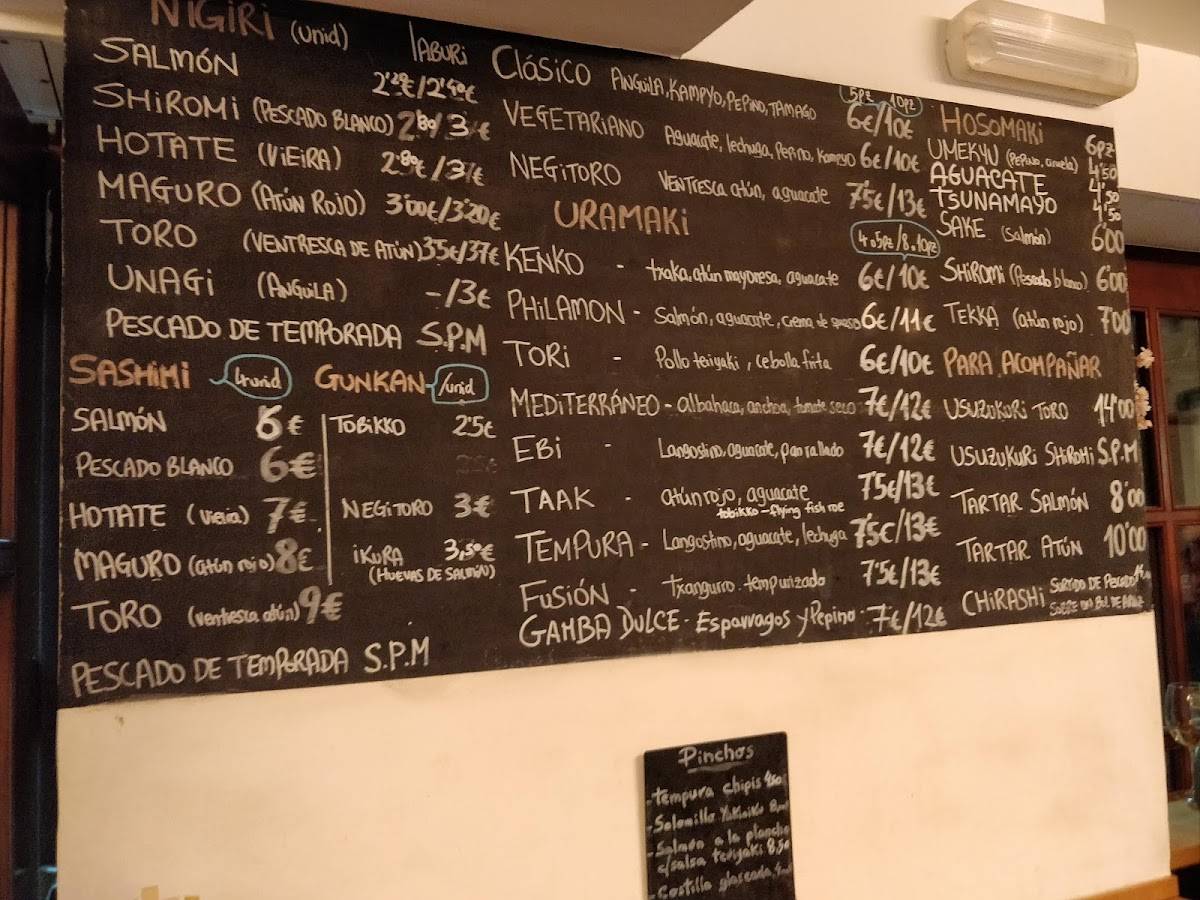 NIGIRI (unid)
/ABURI
SALMÓN 2'20€/2'40€
SHIROMI (PESCADO BLANCO) 2'80/3€
HOTATE (VIEIRA) 2'80€/3'€
MAGURO (ATÚN ROJO) 3'00€/3'20€
TORO (VENTRESCA DE ATÚN) 3'5€/3'7€
UNAGI (ANGUILA) -/3€
PESCADO DE TEMPORADA S.P.M
SASHIMI 4unid
SALMÓN 6€
PESCADO BLANCO 6€
HOTATE (Vieira) 7€
MAGURO (atún rojo) 8€
TORO (ventresca atún) 9€
PESCADO DE TEMPORADA S.P.M
GUNKAN /unid
TOBIKKO 2'5€
NEGITORO 3€
IKURA 3,50€
(HUEVAS DE SALMÓN)
5pz 10pz
CLÁSICO ANGUILA, KAMPYO, PEPINO, TAMAGO 6€/10€
VEGETARIANO Aguacate, lechuga, Pepino, Kampyo 6€/10€
NEGITORO VENTRESCA atún, aguacate 7'5€/13€
URAMAKI
4 o 5pz/8 o 10pz
KENKO - txaka, atún mayonesa, aguacate 6€/10€
PHILAMON - Salmón, aguacate, crema de queso 6€/11€
TORI - Pollo teriyaki, cebolla frita 6€/10€
MEDITERRÁNEO - albahaca, anchoa, tomate seco 7€/12€
EBI - Langostino, aguacate, pan rallado 7€/12€
TAAK - atún rojo, aguacate 7'5€/13€
tobikko - flying fish roe
TEMPURA - Langostino, aguacate, lechuga 7'5€/13€
FUSIÓN - Txangurro tempurizado 7'5€/13€
GAMBA DULCE - Esparragos y Pepino - 7€/12€
HOSOMAKI 6pz
UMEKYU (pepino, ciruela) 4'50
AGUACATE 4'50
TSUNAMAYO 4'50
SAKE (Salmón) 6'00
SHIROMI (Pescado blanco) 6'00
TEKKA (atún rojo) 7'00
PARA ACOMPAÑAR
USUZUKURI TORO 14'00
USUZUKURI SHIROMI S.P.M
TARTAR SALMÓN 8'00
TARTAR ATÚN 10'00
CHIRASHI SURTIDO DE PESCADO
SOBRE UN BOL DE ARROZ
Pinchos
- Tempura chipis 4'50
- Solomillo
- Salmón a la plancha
c/salsa teriyaki 8.50
- Costilla glaseada